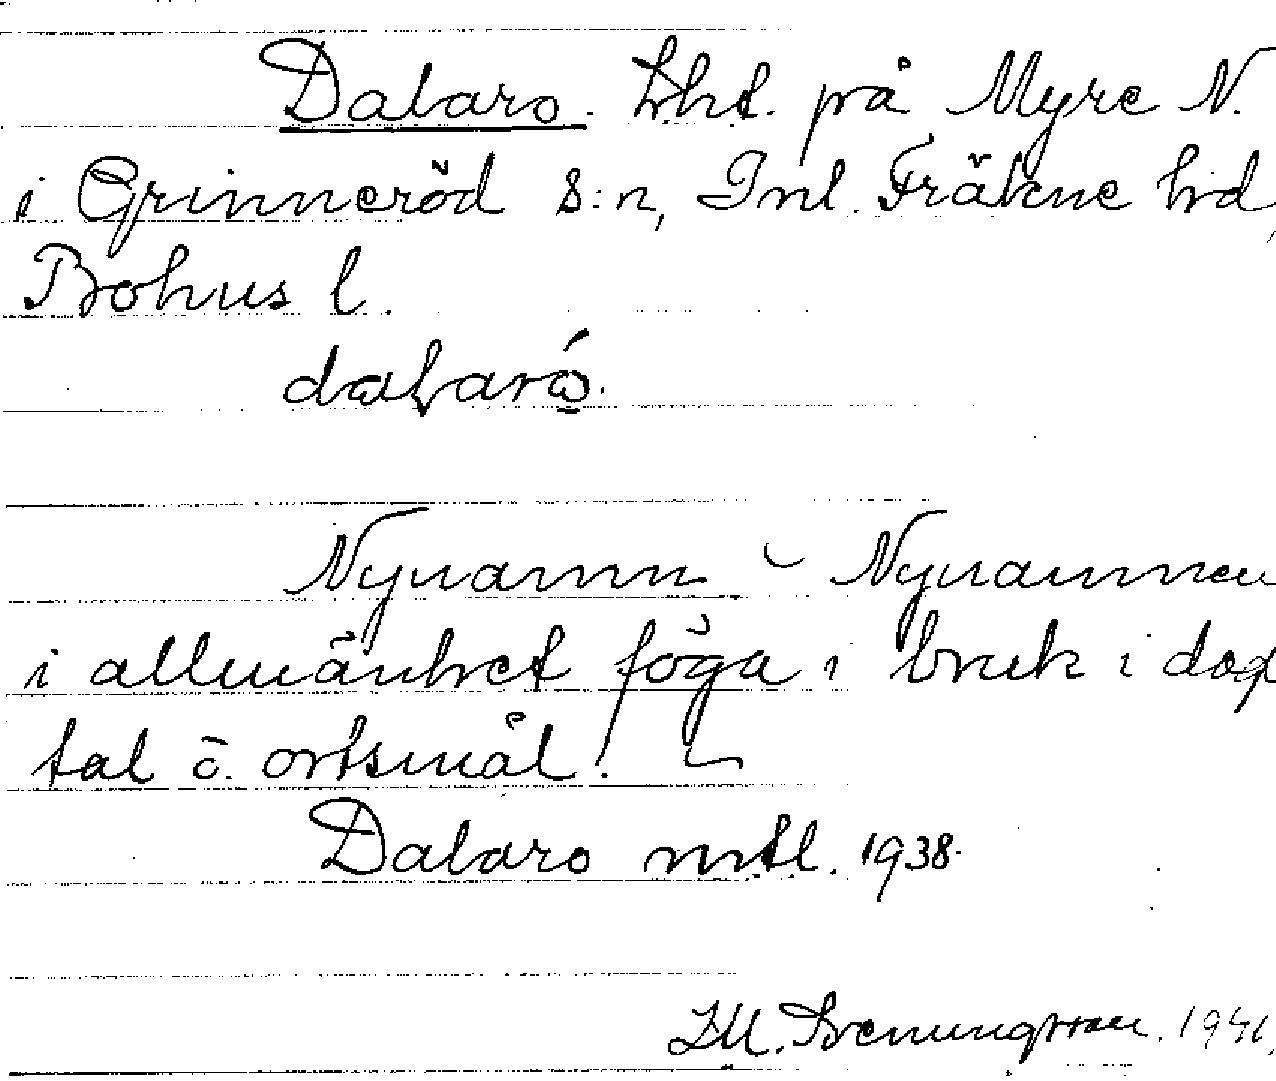 Dalaro. Lht. på Myre N.
i Grinneröd s:n, Inl. Fräkne hd,
Bohus l.
dalarò.
Nynamn – Nynamnen
i allmänhet föga i bruk i dag
tal o. ortsmål.
Dalaro mtl. 1938.
Svenungsson. 1941.